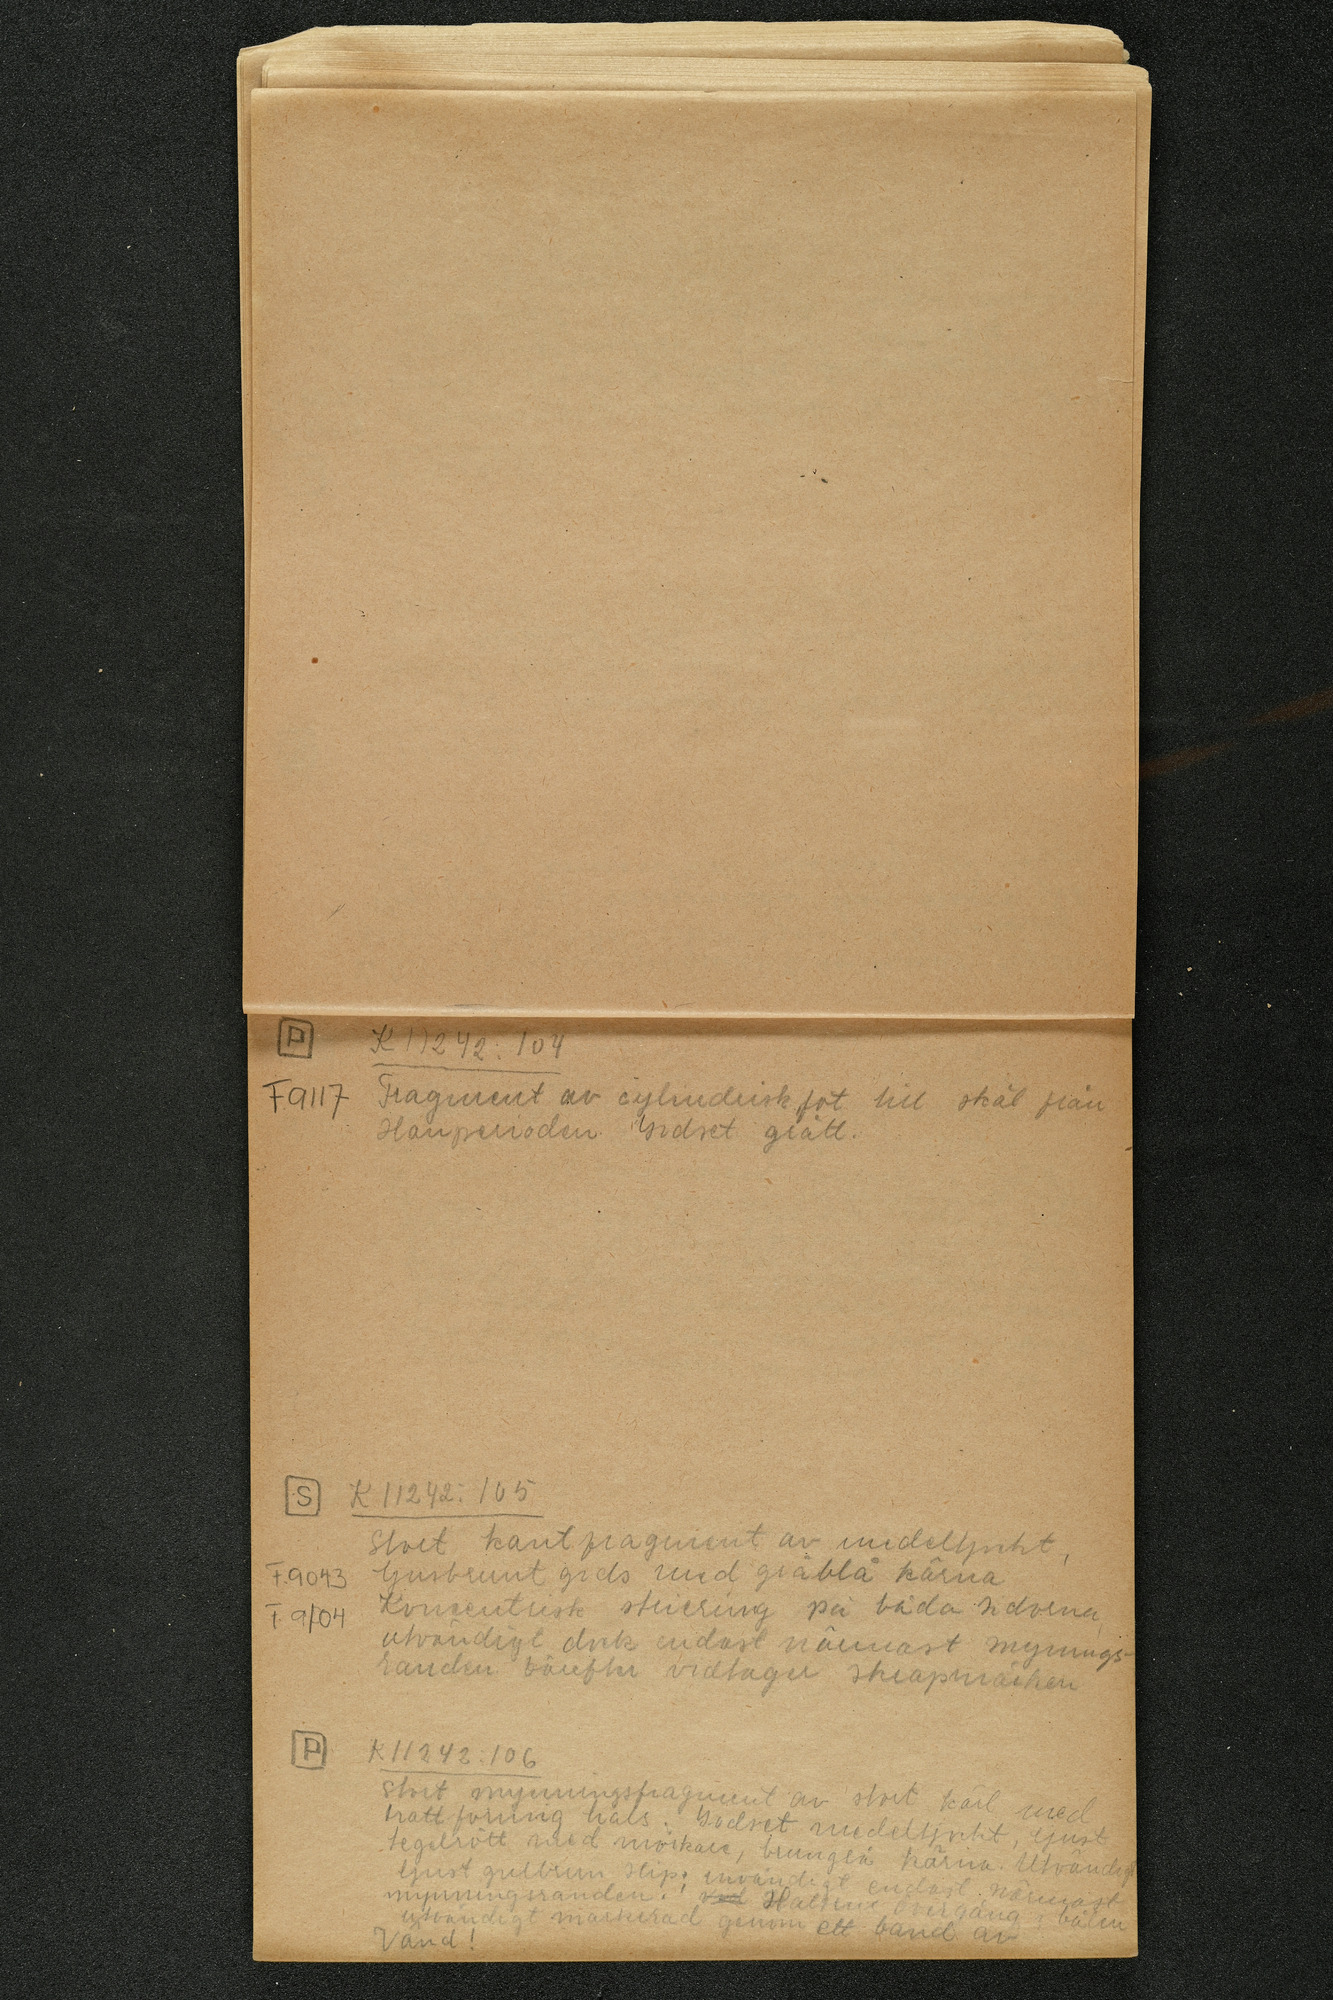 P K 11242:104
F.9117 Fragment av cylindrisk fot till skål från
Hanperioden. Godset grått.
S K 11242:105
Stort kantfragment av medeltjockt,
F.9043 ljusbrunt gods med gråblå kärna
F 9104 Koncentrisk striering på båda sidorna,
utvändigt dock endast närmast mynnings-
randen därefter vidtager skrapmärken
P K 11242:106
Stort mynningsfragment av stort kärl med
trattformig hals. Godset medeltjockt, ljust
tegelrött med mörkare, brungrå kärna. Utvändigt
ljust gulbrun slip; invändigt endast närmast
mynningsranden. Halsens övergång i bålen
utvändigt markerad genom ett band av
Vänd!